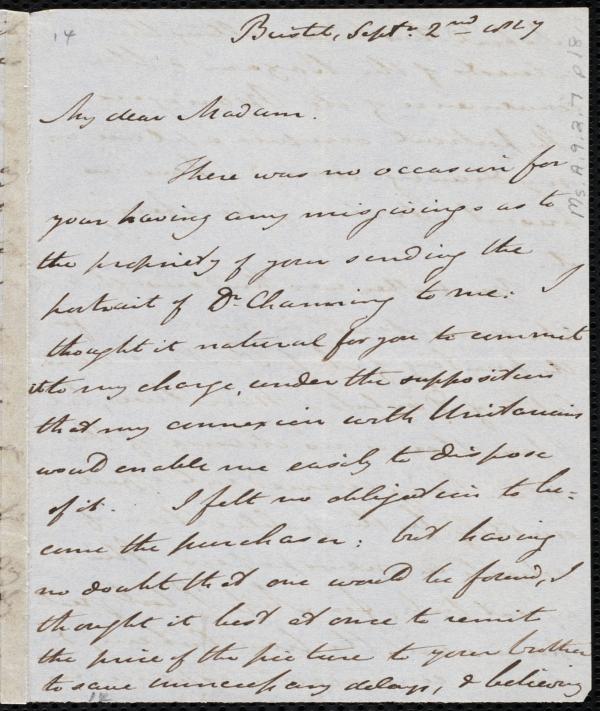 14
Bristol, Septr. 2nd 1847
My dear Madam.
There was no occasion for
your having any misgivings as to
the propriety of your sending the
portrait of Dr Channing to me: I
thought it natural for you to commit
it to my charge, under the supposition
that my connexion with Unitarians
would enable me easily to dispose
of it. I felt no obligation to be=
come the purchaser: but having
no doubt that one would be found, I
thought it best at once to remit
the price of the picture to your brother
to save unnecessary delays, & believing
Ms. A. 9. 2. 7 p 18